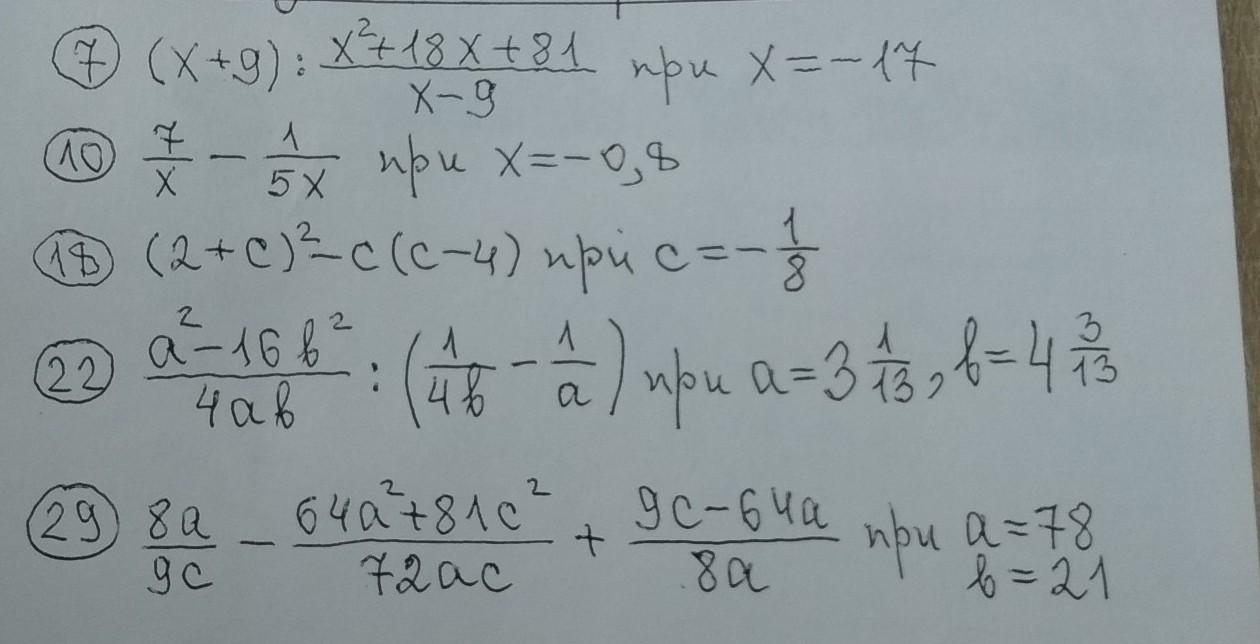 7 (x+9) : (x²+18x+81)/(x-9) при x=-17
10 7/x - 1/5x при x=-0,8
18 (2+c)²-c(c-4) при c=-1/8
22 (a²-16b²)/4ab : (1/4b - 1/a) при a=3 1/13, b=4 3/13
29 8a/9c - (64a²+81c²)/72ac + (9c-64a)/8a при a=78
b=21